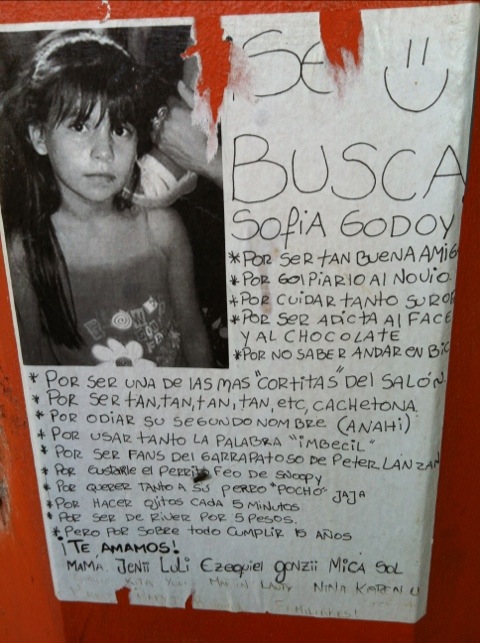 SE
BUSCA
Sofia GODOY
* POR SER TAN BUENA AMIG
* POR GOLPIARLO Al NOVIO.
* POR CUIDAR tANTO SU ROP
* POR SER ADICTA Al FACE
Y AL CHOCOLATE
* POR NO SABER ANDAR EN BIC
* POR SER UNA DE lAS MAS "CORTITAS" Del SALÓN.
* POR SER tAN, tAN, tAN, tAN, etc, CACHETONA.
* POR ODIAR SU SEGUNDO NOMBRE (ANAHI)
* POR USAR tANTO LA PALABRA "imbecil"
* POR SER FANS Del GARRAPATOSO DE PeteR LANZAN
* POR GUSTARLE el PERRito Feo DE SNOOPY
* POR QUERER TANTO A SU PERRO "POCHO" JAJA
* POR HACER OJITOS CADA 5 MINUTOS
* POR SER DE RIVER POR 5 PESOS.
* PERO POR SOBRE todo CUMPLIR 15 AÑOS
¡TE AMAMOS!
MAMA. JENII LULI EZEQUIEL GONZII MICA SOL
NINA KAREN